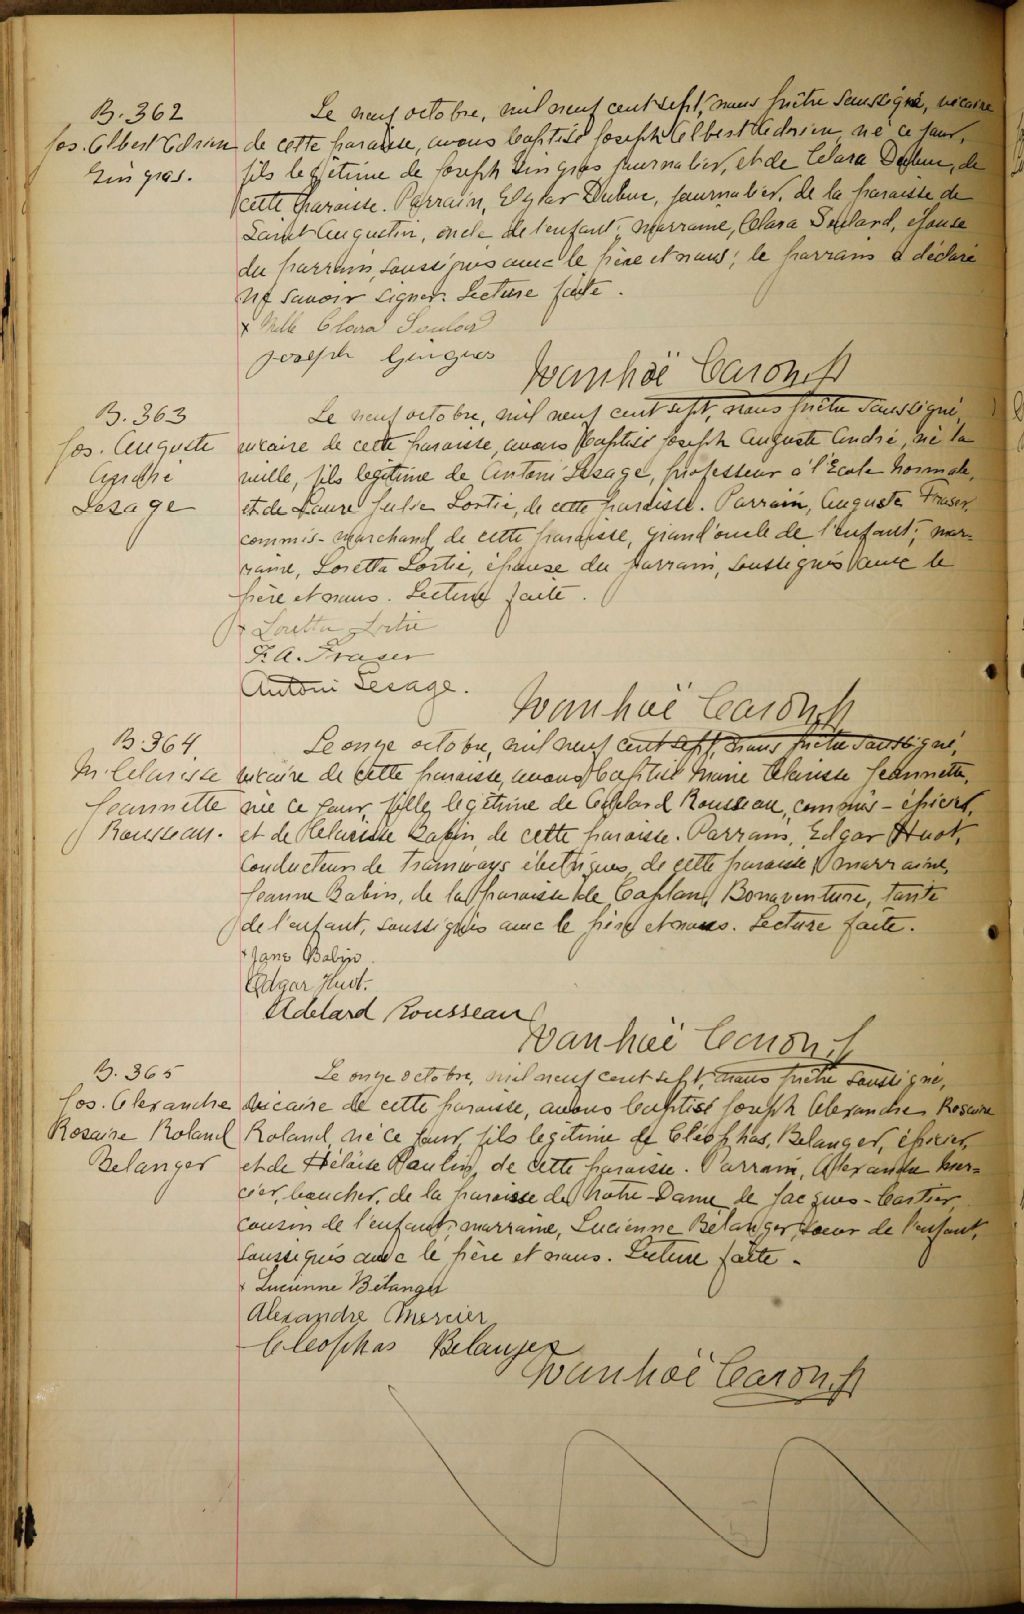 B. 362
Jos. Albert Adrien
Gingras.
Le neuf octobre, mil neuf cent sept, nous prêtre soussigné, vicaire
de cette paroisse, avons baptisé Joseph Albert Adrien, né ce jour,
fils légitime de Joseph Gingras journalier, et de Clara Dubuc, de
cette paroisse. Parrain, Elgar Dubuc, journalier, de la paroisse de
Saint Augustin, oncle de l'enfant; marraine, Clara Soulard, épouse
du parrain, soussignés avec le père et nous; le parrain a déclaré
ne savoir signer. Lecture faite.
x Mlle Clara Soulard
Joseph Gingras
Ivanhoë Caron, ptr
B. 363
Jos. Auguste
André
Lesage
Le neuf octobre, mil neuf cent sept, nous prêtre soussigné,
vicaire de cette paroisse, avons baptisé Joseph Auguste André, né la
veille, fils légitime de Antoni Lesage, professeur à l'École Normale,
et de Laure Julie Lortie, de cette paroisse. Parrain, Auguste Fraser,
commis-marchand de cette paroisse, grand'oncle de l'enfant; mar=
raine, Loretta Lortie, épouse du parrain, soussignés avec le
père et nous. Lecture faite.
x Loretta Lortie
F. A. Fraser
Antoni Lesage.
Ivanhoë Caron, ptr
B. 364
M. Clarisse
Jeannette
Rousseau.
Le onze octobre, mil neuf cent sept, nous prêtre soussigné,
vicaire de cette paroisse, avons baptisé Marie Clarisse Jeannette,
née ce jour, fille légitime de Adélard Rousseau, commis-épicier,
et de Clarisse Babin, de cette paroisse. Parrain, Edgar Huot,
conducteur de tramways électriques, de cette paroisse; marraine,
Jeanne Babin, de la paroisse de Caplan, Bonaventure, tante
de l'enfant, soussignés avec le père et nous. Lecture faite.
x Jane Babin.
Edgar Huot.
Adelard Rousseau
Ivanhoë Caron, ptr
B. 365
Jos. Alexandre
Rosaire Roland
Belanger
Le onze octobre, mil neuf cent sept, nous prêtre soussigné,
vicaire de cette paroisse, avons baptisé Joseph Alexandre Rosaire
Roland, né ce jour, fils légitime de Cléophas, Belanger, épicier,
et de Héloïse Paulin, de cette paroisse. Parrain, Alexandre Mer=
cier, boucher, de la paroisse de Notre-Dame de Jacques-Cartier,
cousin de l'enfant; marraine, Lucienne Bélanger, soeur de l'enfant,
soussignés avec le père et nous. Lecture faite.
x Lucienne Bélanger
Alexandre Mercier
Cleophas Belanger
Ivanhoë Caron, ptr